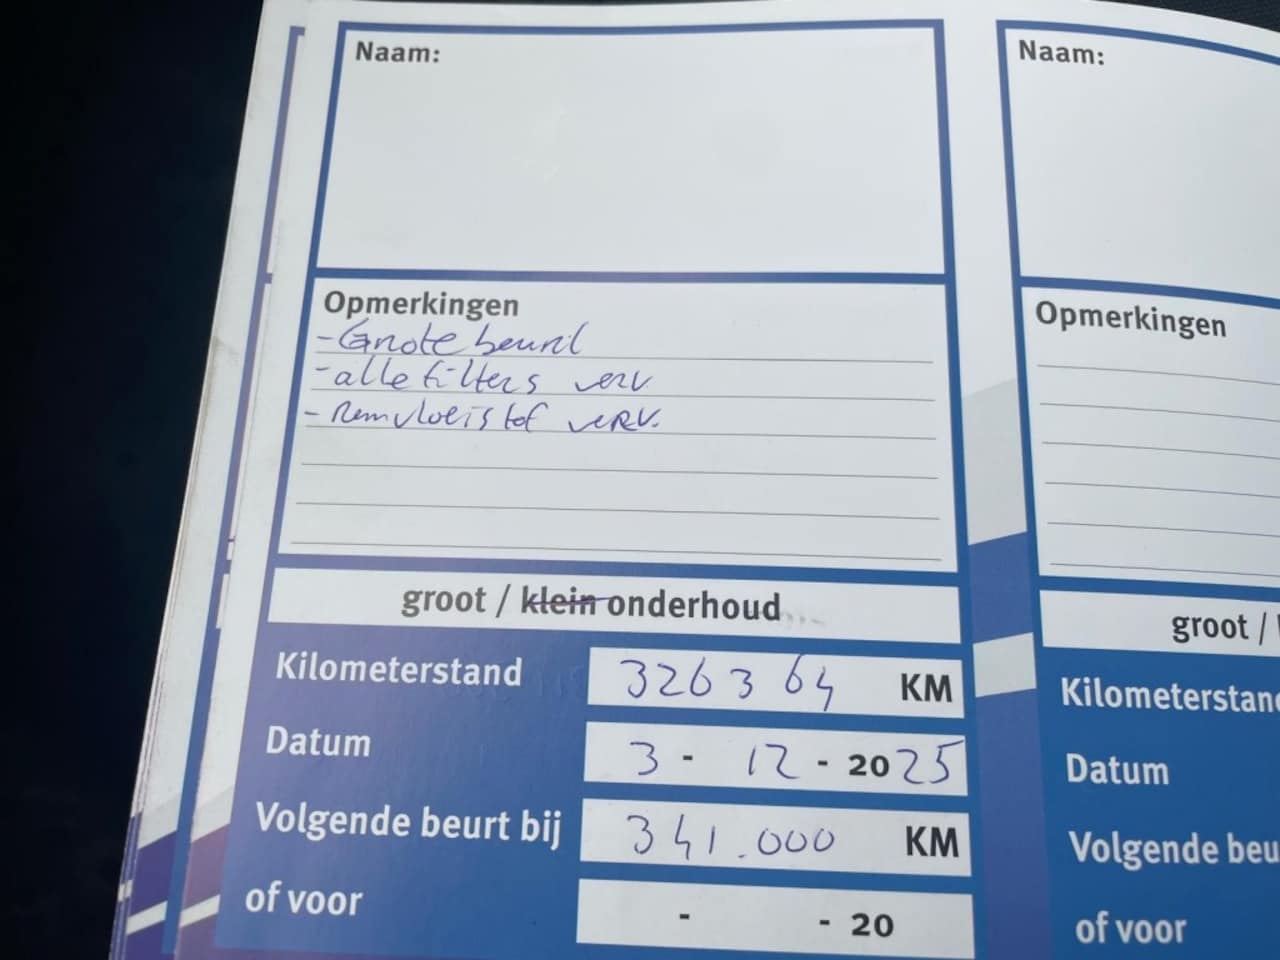 Naam:
Opmerkingen
- Grote beurt
- alle filters verv.
- Remvloeistof verv.
groot / klein onderhoud
Kilometerstand 326364 KM
Datum 3 - 12 - 2025
Volgende beurt bij 341.000 KM
of voor - - 20
Naam:
Opmerkingen
groot /
Kilometerstand
Datum
Volgende beu
of voor